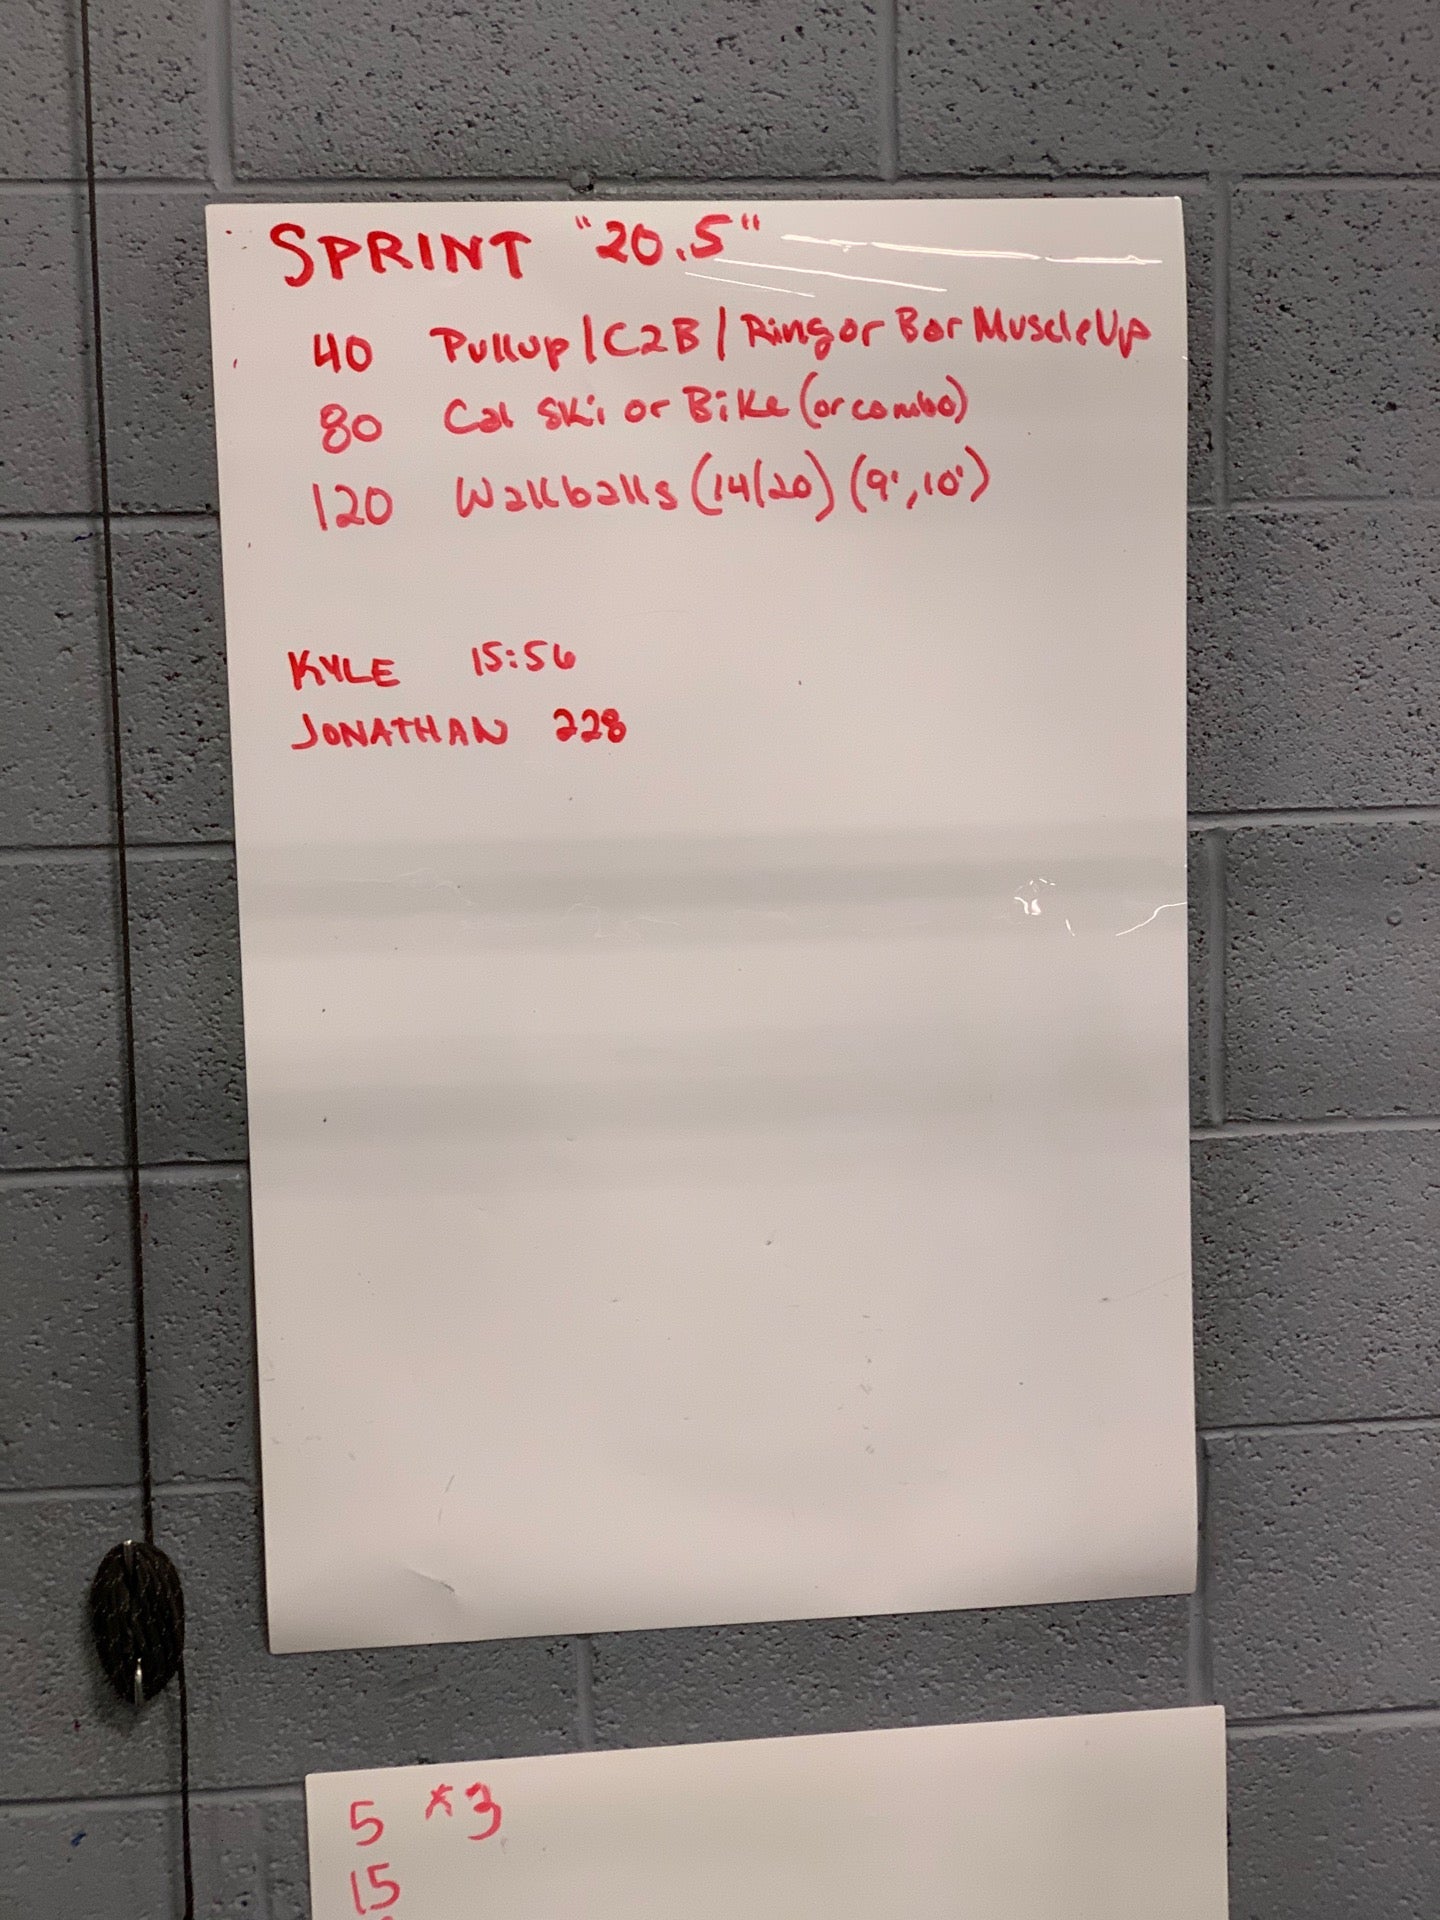 SPRINT "20.5"
40 Pullup/C2B/Ring or Bar MuscleUp
80 Cal Ski or Bike (or combo)
120 Wallballs (14/20) (9', 10')
KYLE 15:56
JONATHAN 228
5 *3
15